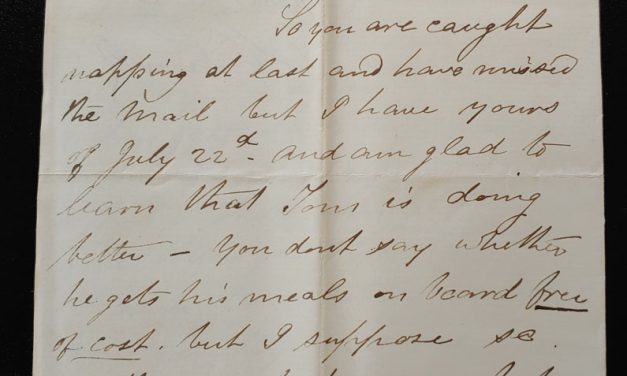 So you are caught
napping at last and have missed
the mail but I have yours
of July 22d - and am glad to
learn that Tom is doing
better - You dont say whether
he gets his meals on board free
of cost. but I suppose so.